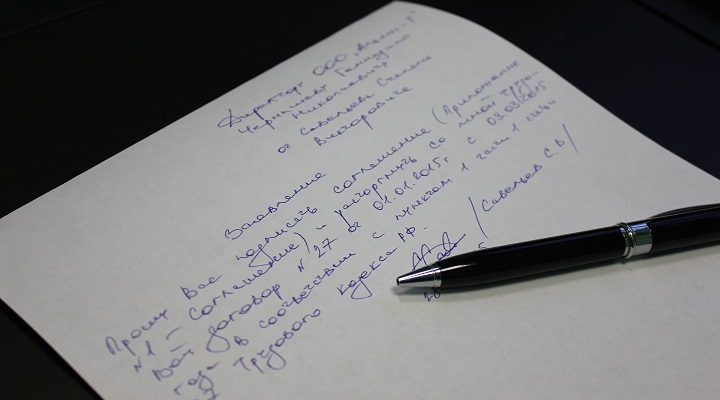 Директору ООО „Апельс-1"
Чернышеву Геннадию
Николаевичу
от Савельева Степана
Викторовича
Заявление
Прошу Вас подписать соглашение (Приложение
№1 – Соглашение) и расторгнуть со мной трудо-
вой договор №27 от 01.01.2015г с 03.03.2015
года в соответствии с пунктом 1 части 1 статьи
Трудового кодекса РФ.
/Савельев С.В/